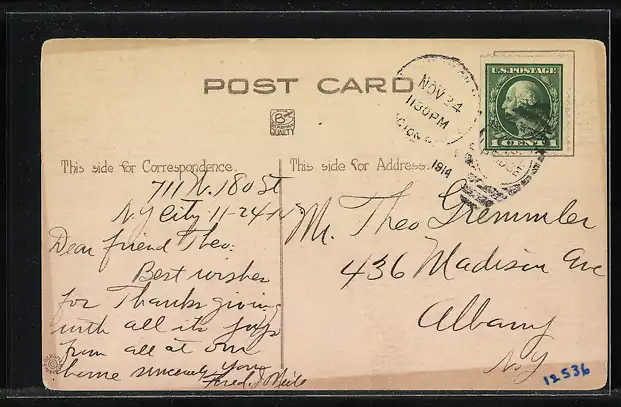 POST CARD
NOV 24
11 30 PM
1914
U.S. POSTAGE
1 CENT 1
BS
QUALITY
This side for Correspondence.
This side for Address.
711 W. 180 St
N.Y. City 11-24-14
Dear friend Theo:
Best wishes
for Thanksgiving
with all its joys
from all at our
home sincerely Yours
Fred.
Mr. Theo Gremmler
436 Madison Ave
Albany
N.Y.
12536